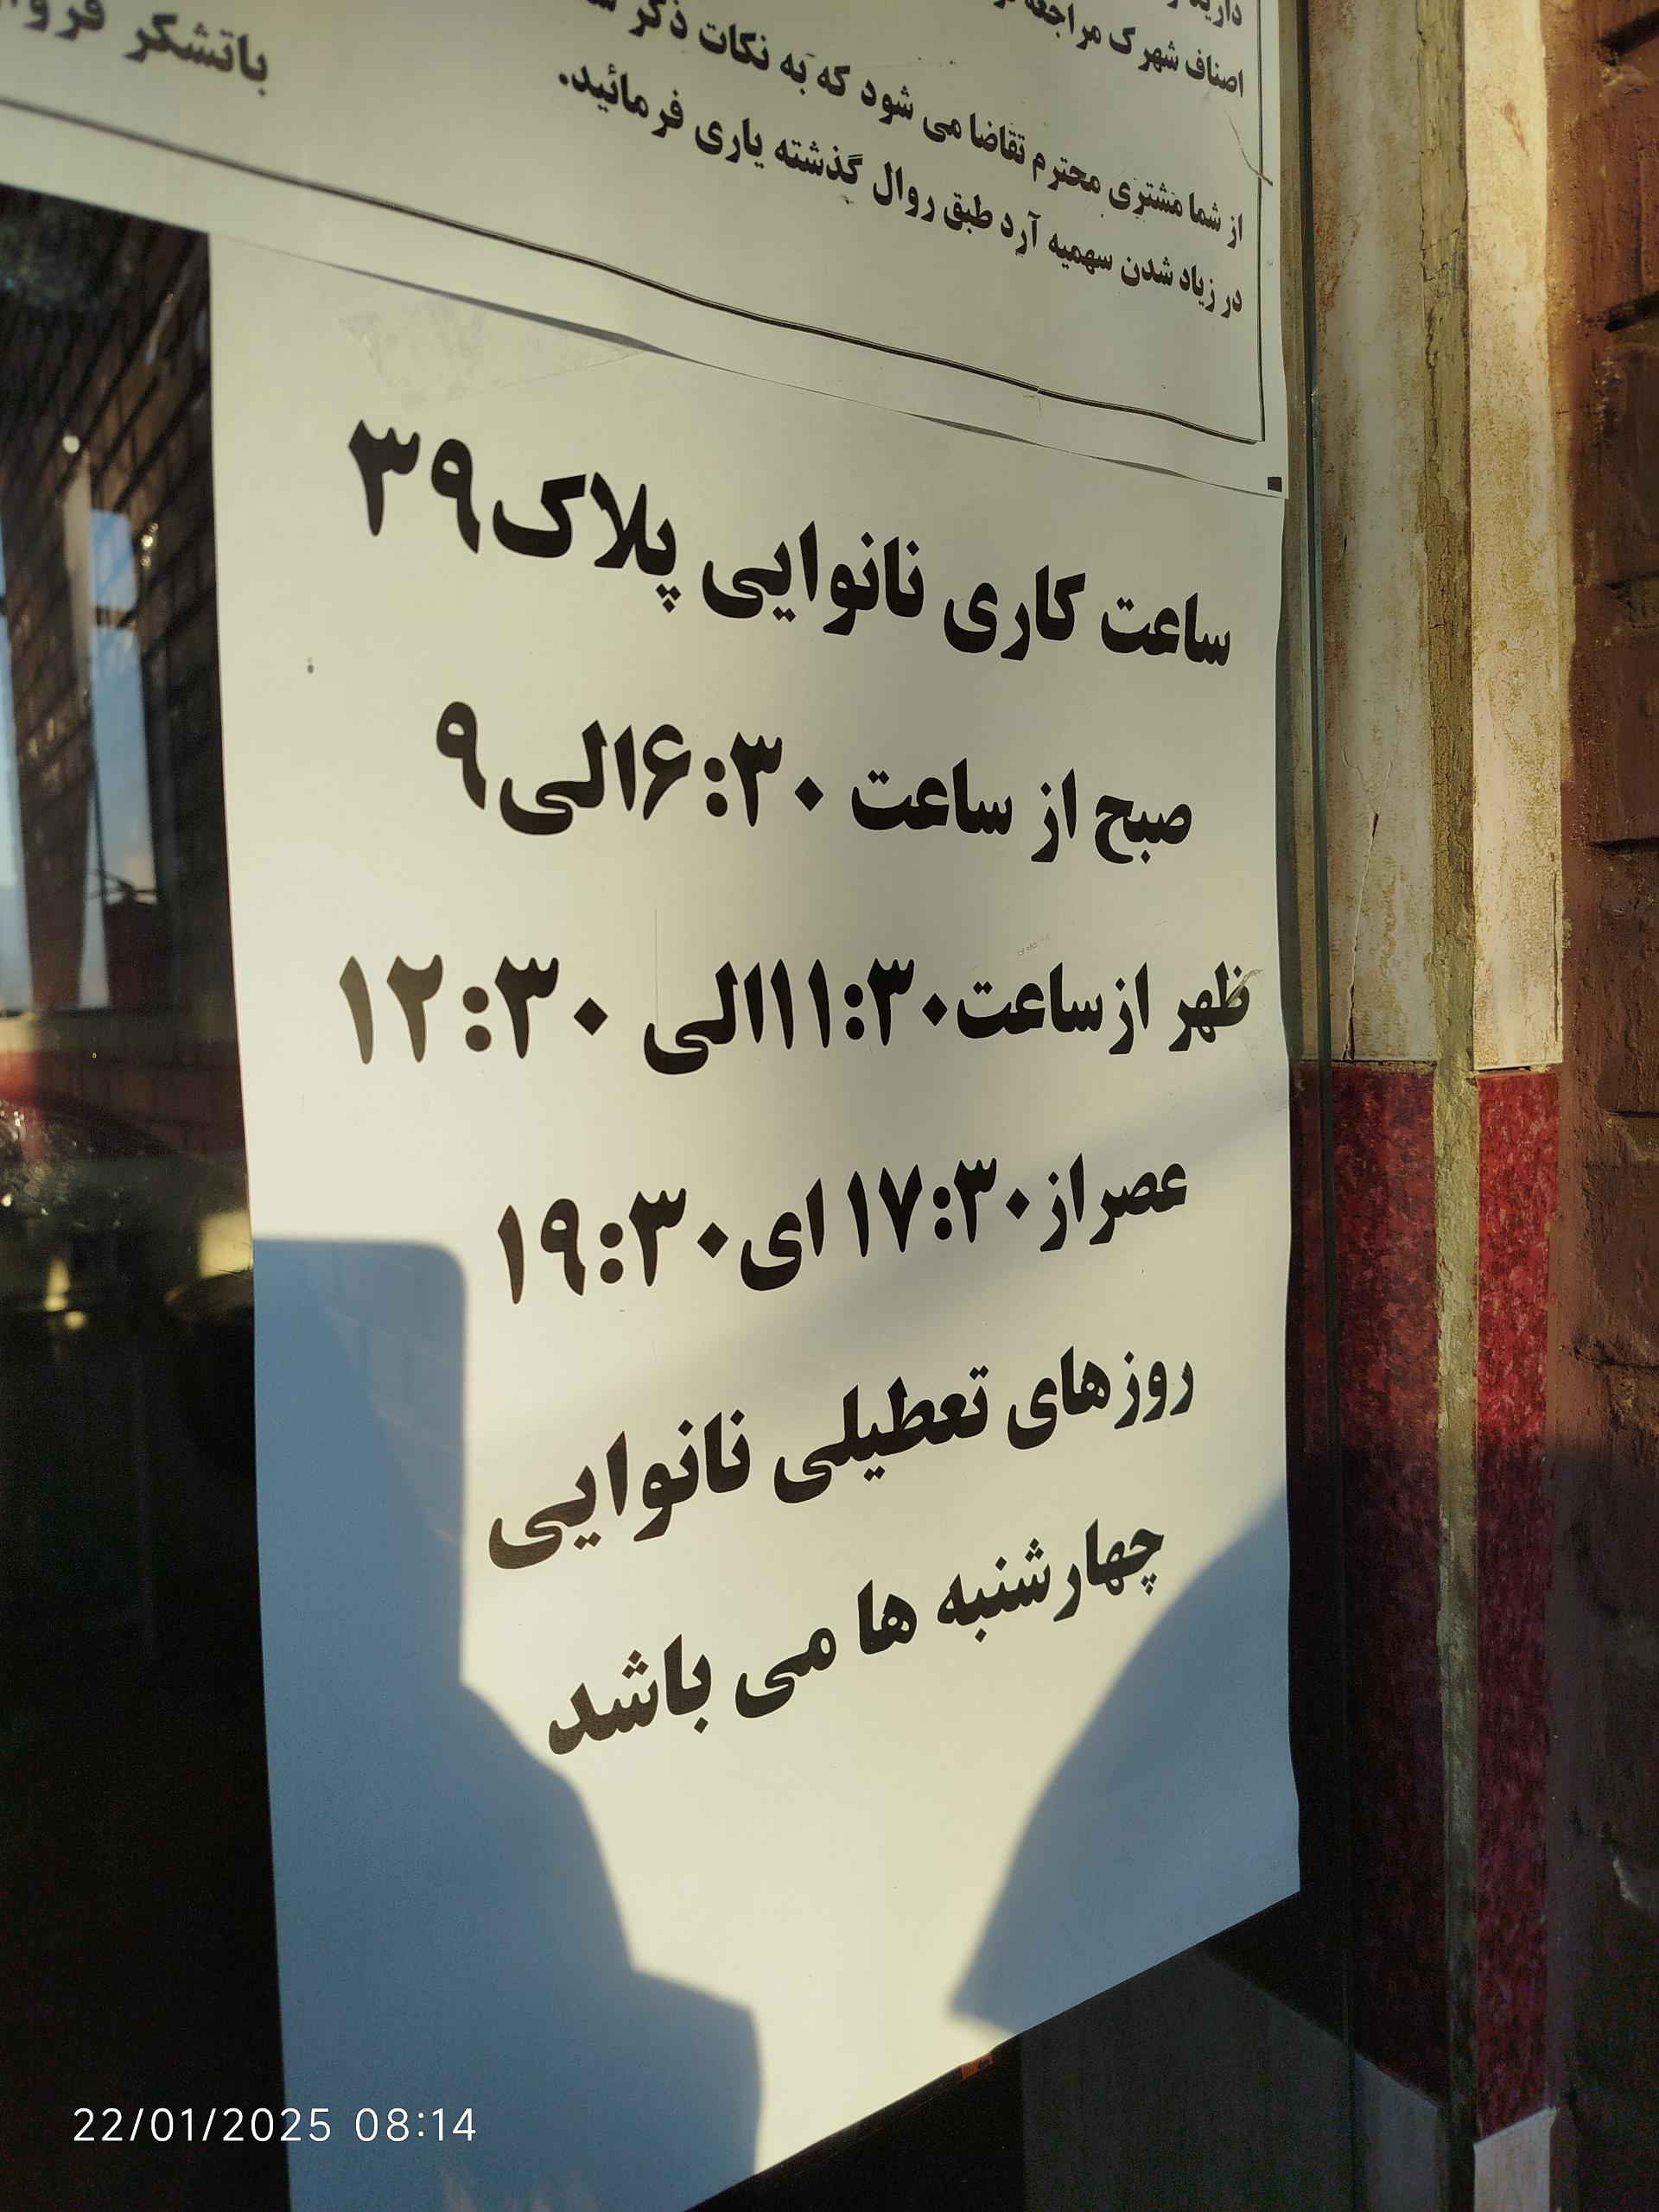 اصناف شهرک مراجعه
از شما مشتری محترم تقاضا می شود که به نکات ذکر
در زیاد شدن سهمیه آرد طبق روال گذشته یاری فرمائید.
باتشکر
ساعت کاری نانوایی پلاک۳۹
صبح از ساعت ۶:۳۰الی۹
ظهر ازساعت۱۱:۳۰الی ۱۲:۳۰
عصراز۱۷:۳۰ ای۱۹:۳۰
روزهای تعطیلی نانوایی
چهارشنبه ها می باشد
22/01/2025 08:14